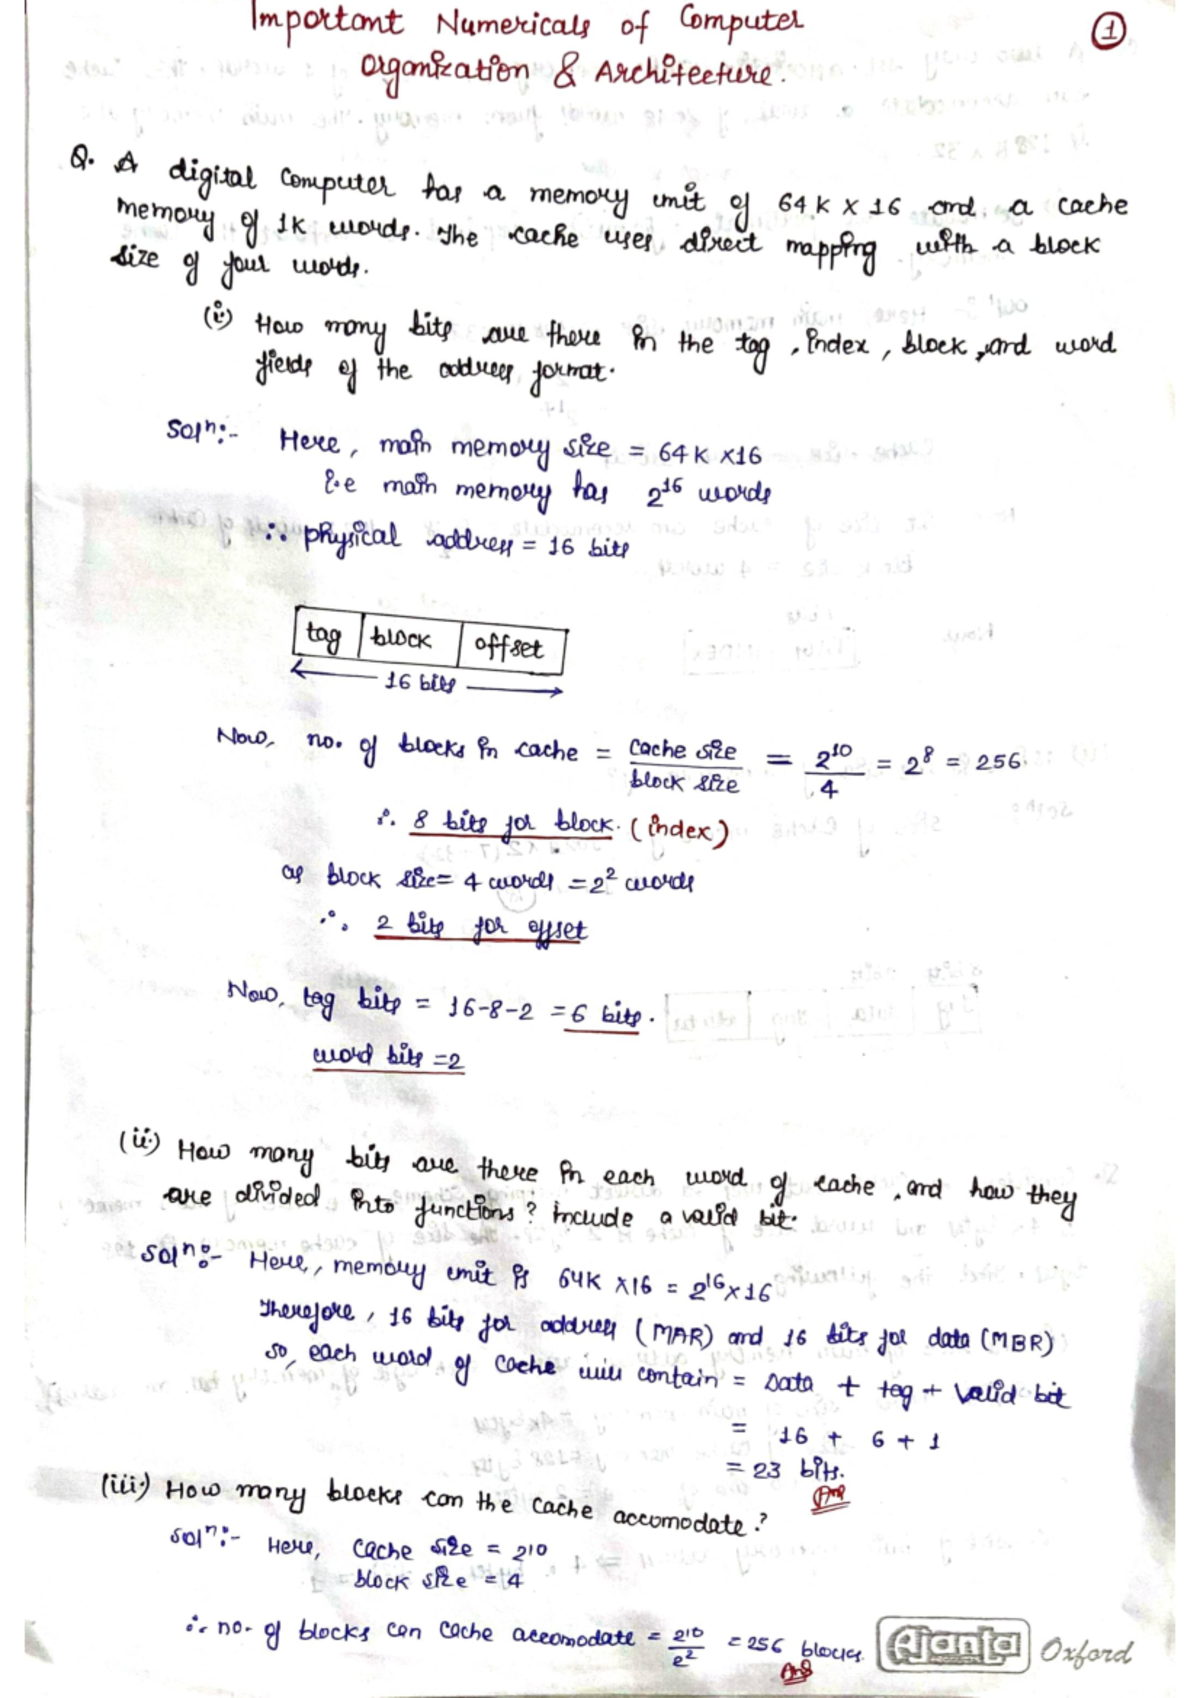 Important Numericals of Computer
Organization & Architecture.
1
Q. A digital Computer has a memory unit of 64K X 16 and a cache
memory of 1K words. The cache uses direct mapping with a block
size of four words.
(i) How many bits are there in the tag, index, block, and word
fields of the address format.
Solⁿ:- Here, main memory size = 64K X16
i.e main memory has 2¹⁶ words
∴ physical address = 16 bits
tag block offset
16 bits
Now, no. of blocks in cache = Cache size / block size = 2¹⁰ / 4 = 2⁸ = 256
∴ 8 bits for block. (index)
as block size= 4 words = 2² words
∴ 2 bits for offset
Now, tag bits = 16-8-2 = 6 bits.
word bits =2
(ii) How many bits are there in each word of cache, and how they
are divided into functions? include a valid bit.
Solⁿ:- Here, memory unit is 64K X16 = 2¹⁶X16
Therefore, 16 bits for address (MAR) and 16 bits for data (MBR)
so, each word of Cache will contain = Data + tag + Valid bit
= 16 + 6 + 1
= 23 bits.
Ans
(iii) How many blocks can the cache accomodate?
Solⁿ:- Here, Cache size = 2¹⁰
block size = 4
∴ no. of blocks can Cache accomodate = 2¹⁰ / 2² = 256 blocks.
Ans
Ajanta Oxford